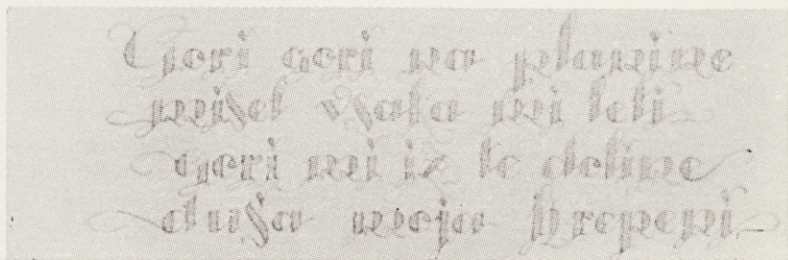 Gori gori na planine
misel vsaka mi leti
gori mi iz te doline
duša moja hrepeni